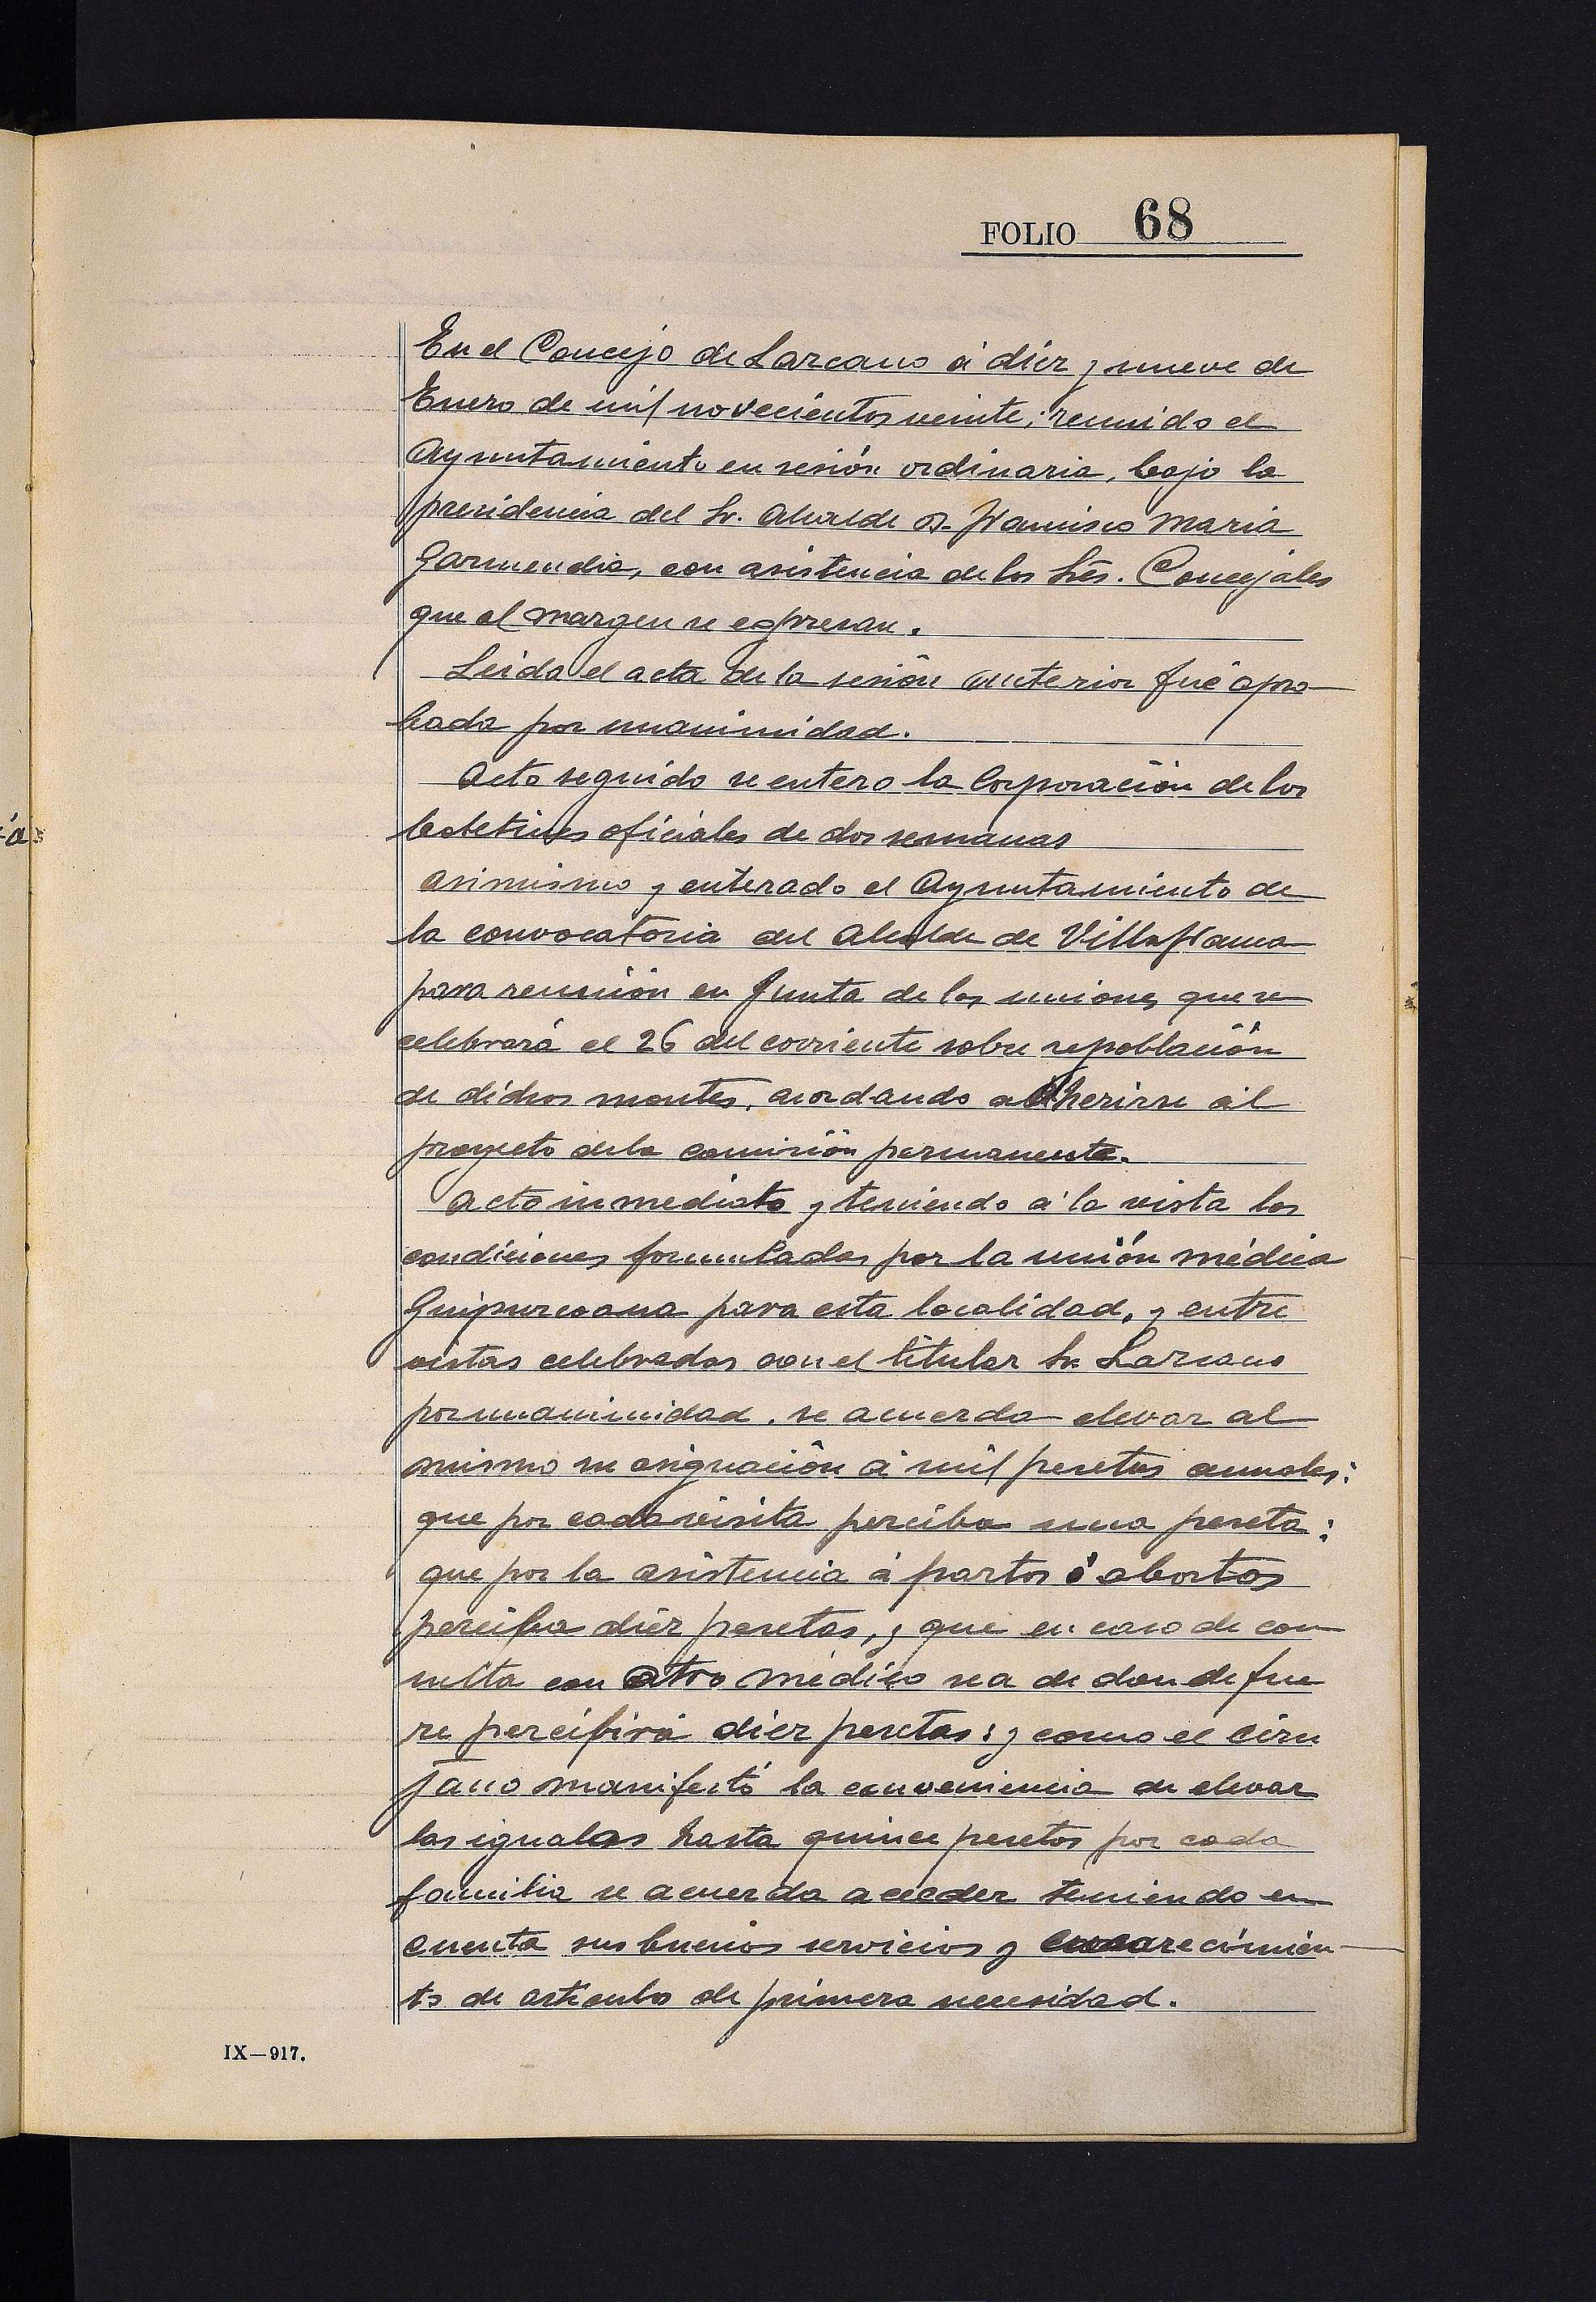 FOLIO 68
En el Concejo de Lazcano á diez y nueve de
Enero de mil novecientos veinte; reunido el
Ayuntamiento en sesión ordinaria, bajo la
presidencia del Sr. Alcalde D. Francisco Maria
Garmendia, con asistencia de los Srés. Concejáles
que al margen se espresan.
Leida el acta de la sesión anterior fué apro-
bada por unanimidad.
Acto seguido se entero la Corporación de los
boletines oficiales de dos semanas
Asimismo y enterado el Ayuntamiento de
la convocatoria del Alcalde de Villafranca
para reunión en Junta de las uniones que se
celebrará el 26 del corriente sobre repoblación
de dichos montes, acordando adherirse al
proyecto de la comisión permanente.
Acto inmediato y teniendo á la vista las
condiciones formuladas por la unión médica
Guipuzcoana para esta localidad, y entre
vistas celebradas con el titular Sr. Lazcano
por unanimidad. se acuerda elevar al
mismo su asignación á mil pesetas anuales:
que por cada visita perciba una peseta:
que por la asistencia á partos ó abortos
perciba diez pesetas, y que en caso de con
sulta con otro médico sea de donde fue
re percibirá diez pesetas: y como el ciru
jano manifestó la conveniencia de elevar
las igualas hasta quince pesetas por cada
familia se acuerda acceder teniendo en
cuenta sus buenos servicios y encarecimien-
to de artículos de primera necesidad.
IX—917.
-á